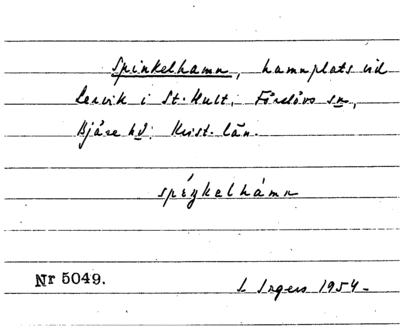 Spinkelhamn, hamnplats vid
Lervik i St. Hult, Förslövs sn,
Bjäre hd. Krist. län.
spéŋkelhámn
Nr 5049.
1954